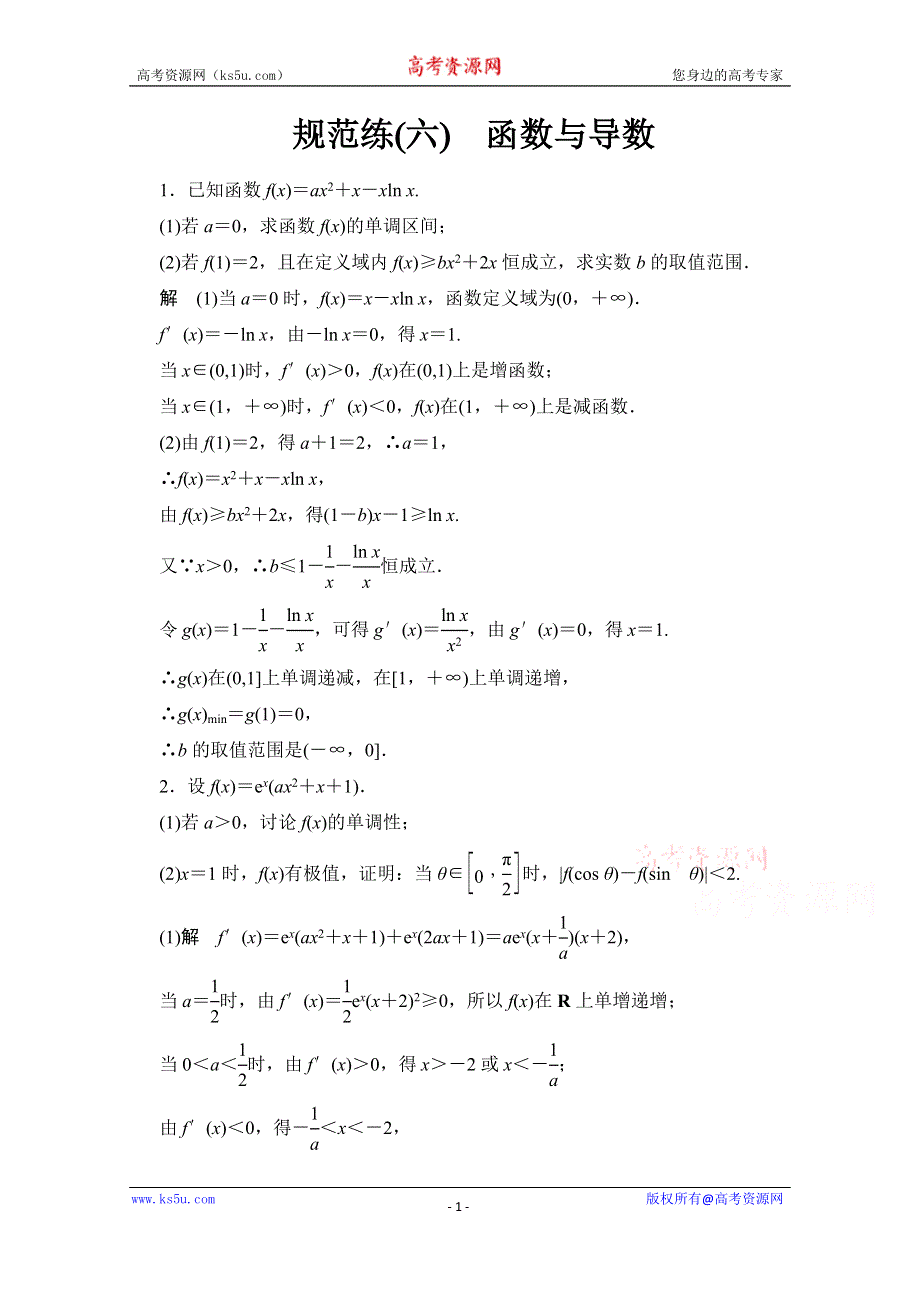 高考资源网（ks5u.com）
高考资源网
您身边的高考专家
规范练(六)　函数与导数
1．已知函数 f(x)＝ax²＋x－xln x.
(1)若 a＝0，求函数 f(x)的单调区间；
(2)若 f(1)＝2，且在定义域内 f(x)≥bx²＋2x 恒成立，求实数 b 的取值范围．
解　(1)当 a＝0 时，f(x)＝x－xln x，函数定义域为(0，＋∞)．
f′(x)＝－ln x，由－ln x＝0，得 x＝1.
当 x∈(0,1)时，f′(x)＞0，f(x)在(0,1)上是增函数；
当 x∈(1，＋∞)时，f′(x)＜0，f(x)在(1，＋∞)上是减函数．
(2)由 f(1)＝2，得 a＋1＝2，∴a＝1，
∴f(x)＝x²＋x－xln x，
由 f(x)≥bx²＋2x，得(1－b)x－1≥ln x.
又∵x＞0，∴b≤1－1/x－ln x/x恒成立．
令 g(x)＝1－1/x－ln x/x，可得 g′(x)＝ln x/x²，由 g′(x)＝0，得 x＝1.
∴g(x)在(0,1]上单调递减，在[1，＋∞)上单调递增，
∴g(x)min＝g(1)＝0，
∴b 的取值范围是(－∞，0]．
2．设 f(x)＝eˣ(ax²＋x＋1)．
(1)若 a＞0，讨论 f(x)的单调性；
(2)x＝1 时，f(x)有极值，证明：当 θ∈[0，π/2]时，|f(cos θ)－f(sin　θ)|＜2.
高考资源网
高考资源网
(1)解　f′(x)＝eˣ(ax²＋x＋1)＋eˣ(2ax＋1)＝aeˣ(x＋1/a)(x＋2)，
当 a＝1/2时，由 f′(x)＝1/2eˣ(x＋2)²≥0，所以 f(x)在 R 上单增递增；
当 0＜a＜1/2时，由 f′(x)＞0，得 x＞－2 或 x＜－1/a；
由 f′(x)＜0，得－1/a＜x＜－2，
www.ks5u.com
- 1 -
版权所有@高考资源网